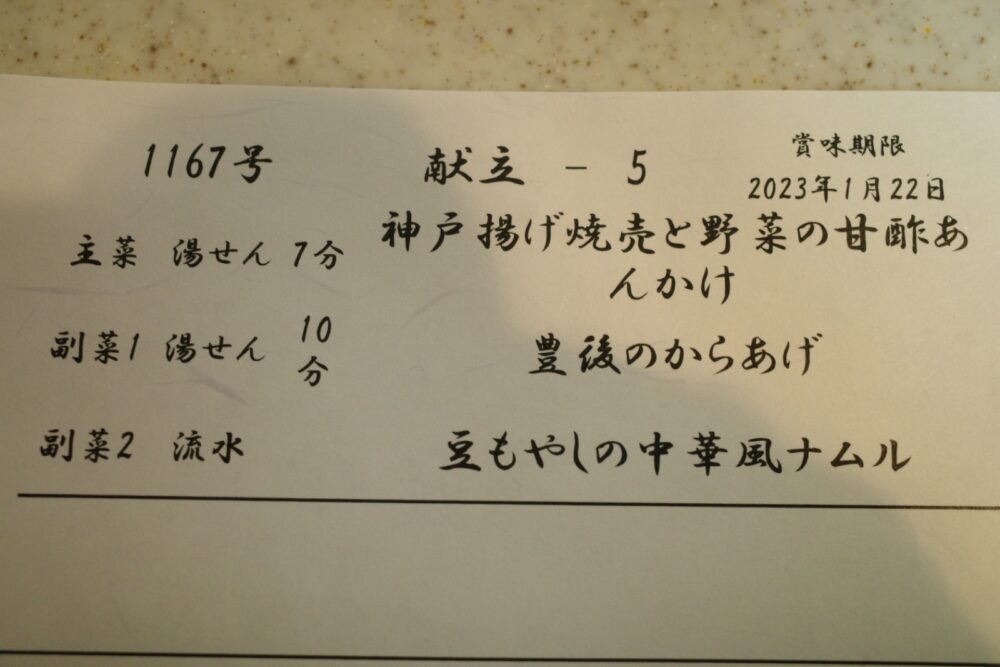 1167号 献立 − 5 賞味期限
2023年1月22日
主菜 湯せん 7分 神戸揚げ焼売と野菜の甘酢あ
んかけ
副菜1 湯せん 10分 豊後のからあげ
副菜2 流水 豆もやしの中華風ナムル